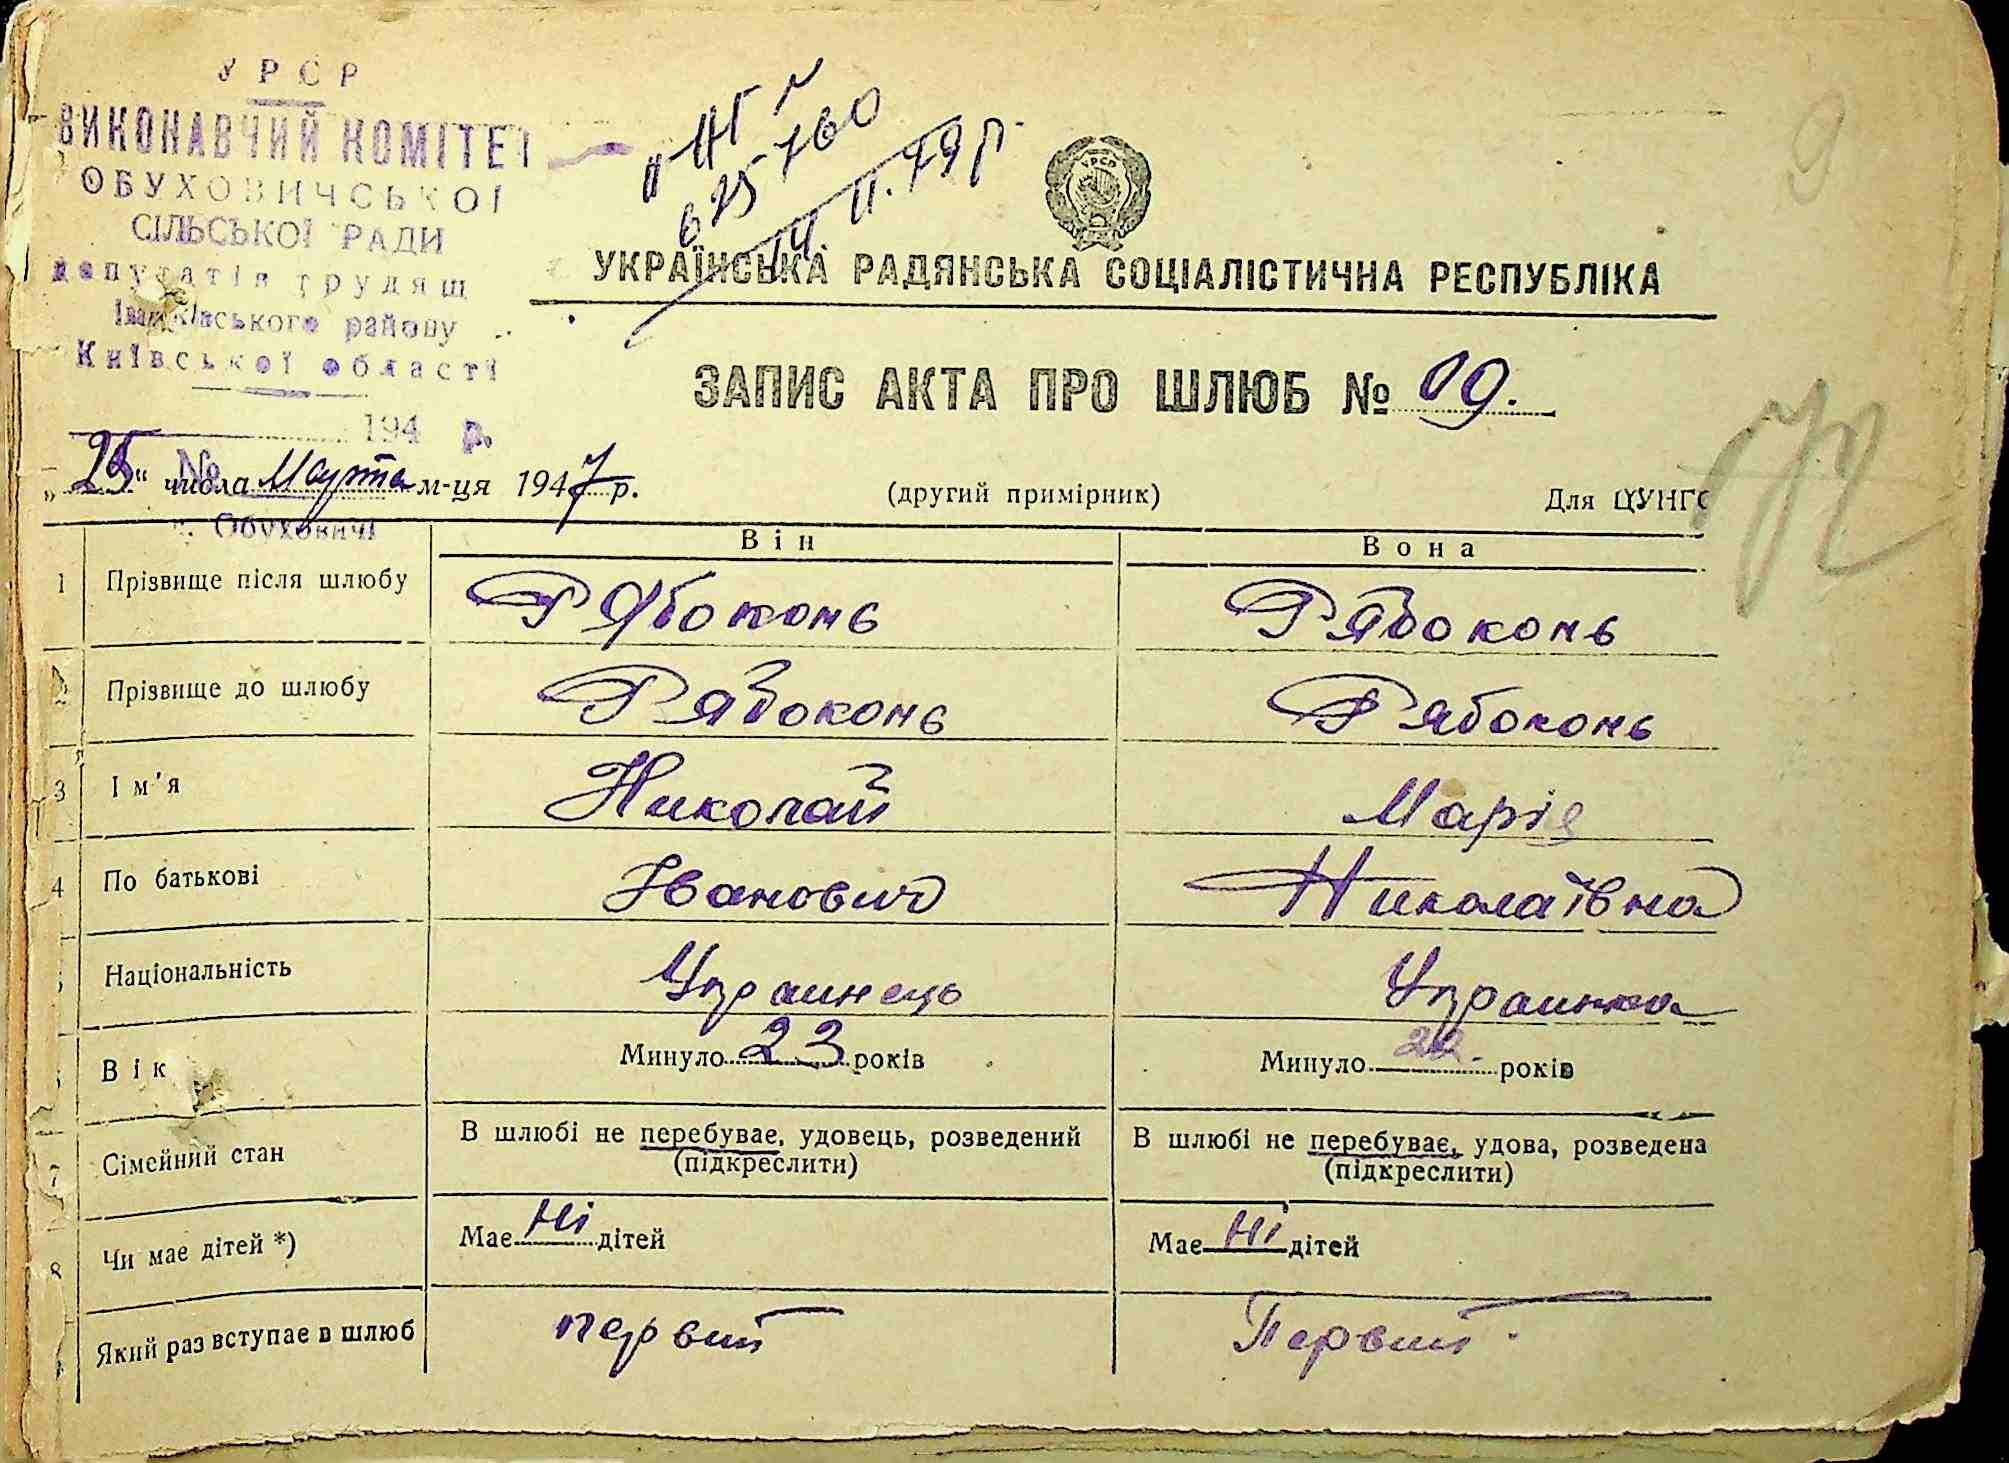 УРСР
ВИКОНАВЧИЙ КОМІТЕТ
ОБУХОВИЧСЬКОЇ
СІЛЬСЬКОЇ РАДИ
депутатів трудящ
Іванківського району
Київської області
194 р.
№
с. Обуховичі
9
УРСР
УКРАЇНСЬКА РАДЯНСЬКА СОЦІАЛІСТИЧНА РЕСПУБЛІКА
ЗАПИС АКТА ПРО ШЛЮБ № 09.
„25“ числа Марта м-ця 1947 р.
(другий примірник)
Для ЦУНГО
Він
Вона
1 Прізвище після шлюбу Рябоконь Рябоконь
2 Прізвище до шлюбу Рябоконь Рябоконь
3 Ім'я Николай Марія
4 По батькові Іванович Николаївна
Національність Украинець Украинка
Вік Минуло 23 років Минуло 22 років
7 Сімейний стан В шлюбі не перебуває, удовець, розведений В шлюбі не перебуває, удова, розведена
(підкреслити) (підкреслити)
8 Чи має дітей *) Має Ні дітей Має Ні дітей
Який раз вступає в шлюб первий Первий